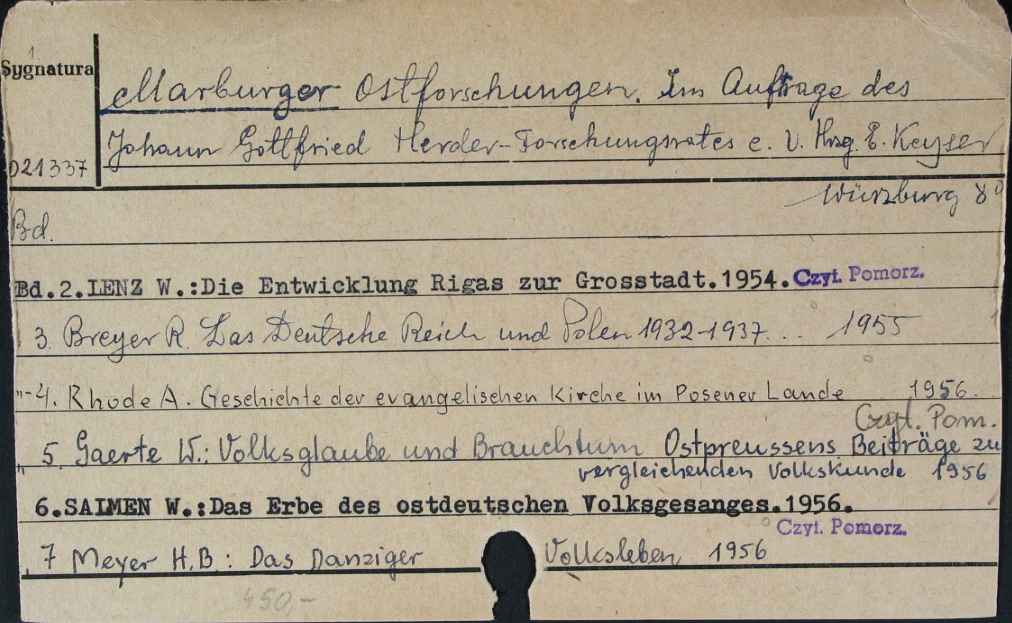 1
Sygnatura
Marburger Ostforschungen. Im Auftrage des
Johann Gottfried Herder-Forschungsrates e. V. Hrsg. E. Keyser
D21337
Würzburg 8°
Bd.
Bd.2.LENZ W.:Die Entwicklung Rigas zur Grosstadt.1954. Czyt. Pomorz.
3. Breyer R. Das Deutsche Reich und Polen 1932-1937... 1955
"-4. Rhode A. Geschichte der evangelischen Kirche im Posener Lande 1956.
Czyt. Pom.
" 5. Gaerte W.: Volksglaube und Brauchtum Ostpreussens. Beiträge zu
vergleichenden Volkskunde 1956
6.SALMEN W.:Das Erbe des ostdeutschen Volksgesanges.1956.
Czyt. Pomorz.
7 Meyer H.B.: Das Danziger Volksleben 1956
450,-